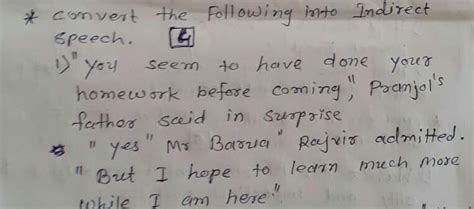 * Convert the Following into Indirect
speech. [4]
1) "You seem to have done your
homework before coming", Pranjol's
father said in surprise
"Yes" Mr Barua" Rajvir admitted.
"But I hope to learn much more
while I am here".